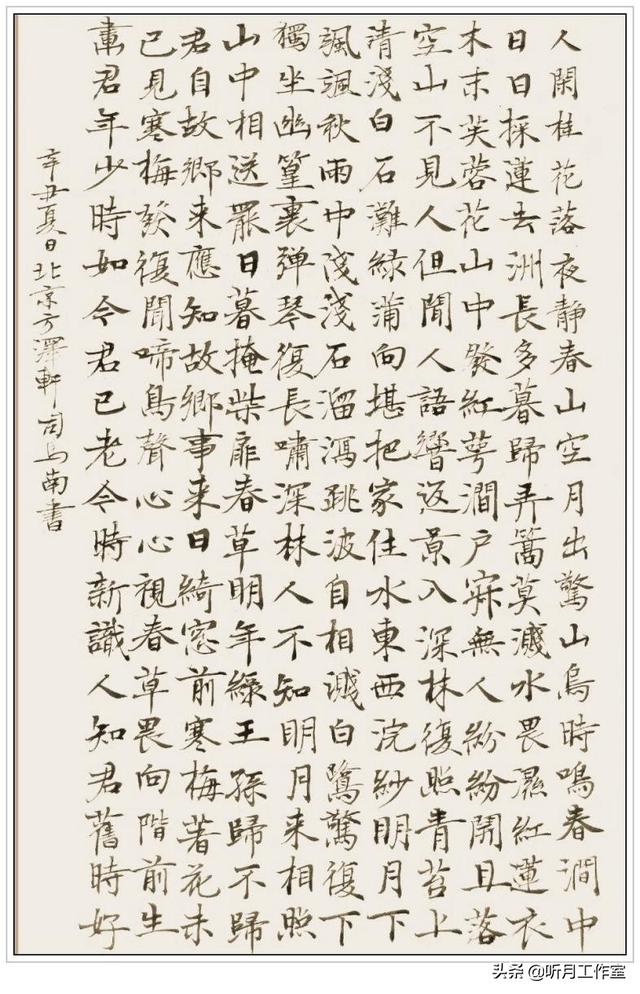 人閑桂花落夜静春山空月出驚山鳥時鳴春澗中
日日採蓮去洲長多暮歸弄篙莫濺水畏濕紅蓮衣
木末芙蓉花山中發紅萼澗户寂無人紛紛開且落
空山不見人但聞人語響返景入深林復照青苔上
清淺白石灘綠蒲向堪把家住水東西浣紗明月下
颯颯秋雨中淺淺石溜瀉跳波自相濺白鷺驚復下
獨坐幽篁裏彈琴復長嘯深林人不知明月来相照
山中相送罷日暮掩柴扉春草明年綠王孫歸不歸
君自故鄉来應知故鄉事来日綺窓前寒梅著花未
已見寒梅發復聞啼鳥聲心心視春草畏向階前生
畫君年少時如今君已老今時新識人知君舊時好
辛丑夏日北京方澤軒司馬南書
头条 @听月工作室